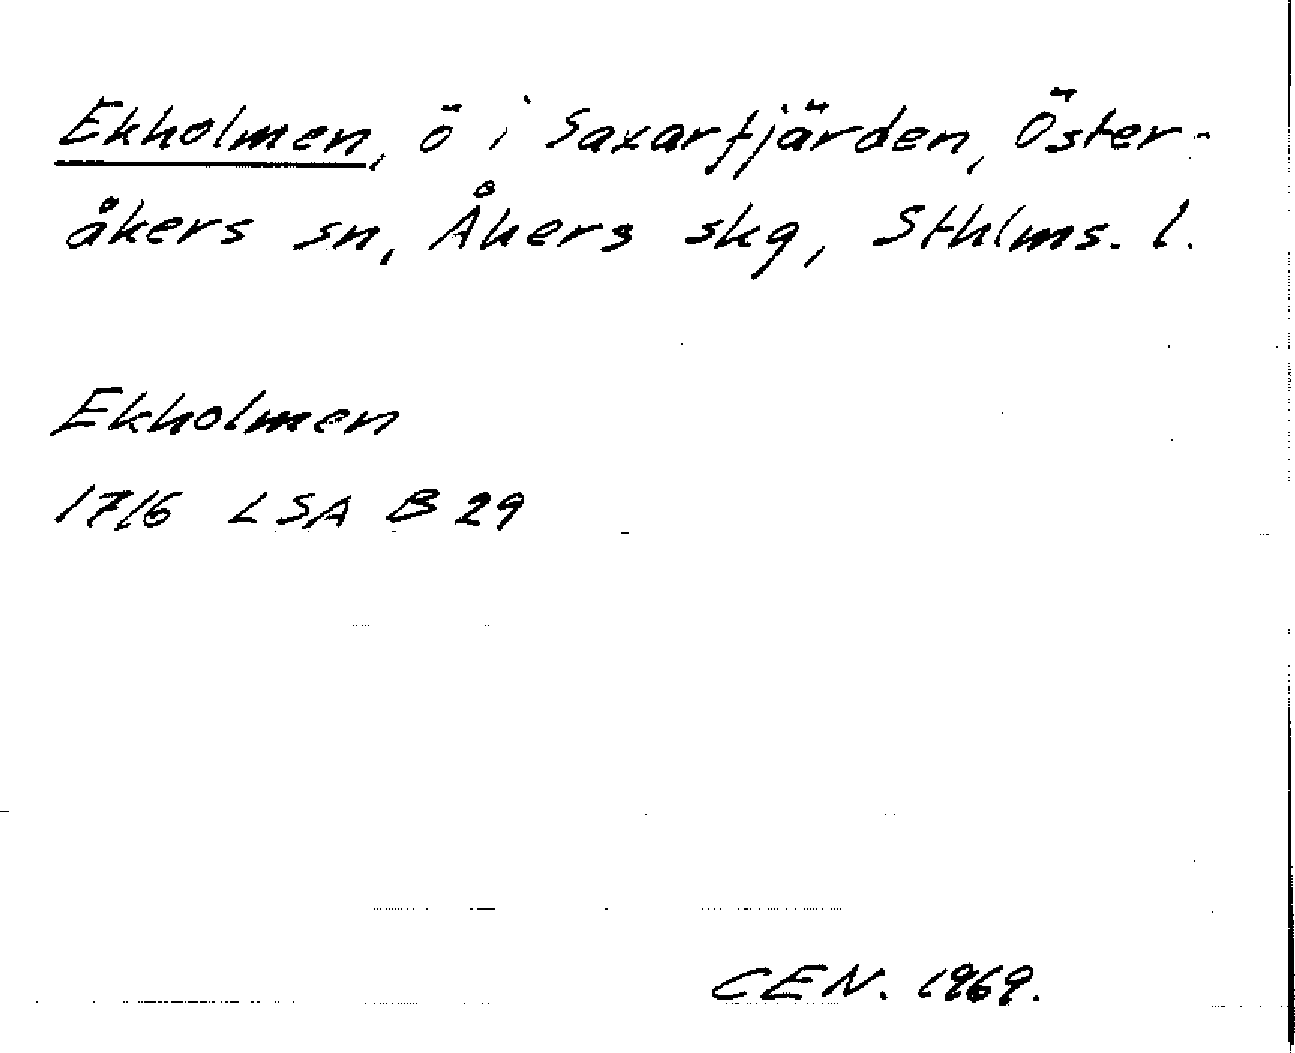 Ekholmen, ö i Saxarfjärden, Öster-
åkers sn, Åkers skg, Sthlms. l.
Ekholmen
1716 LSA B 29
CEN. 1969.